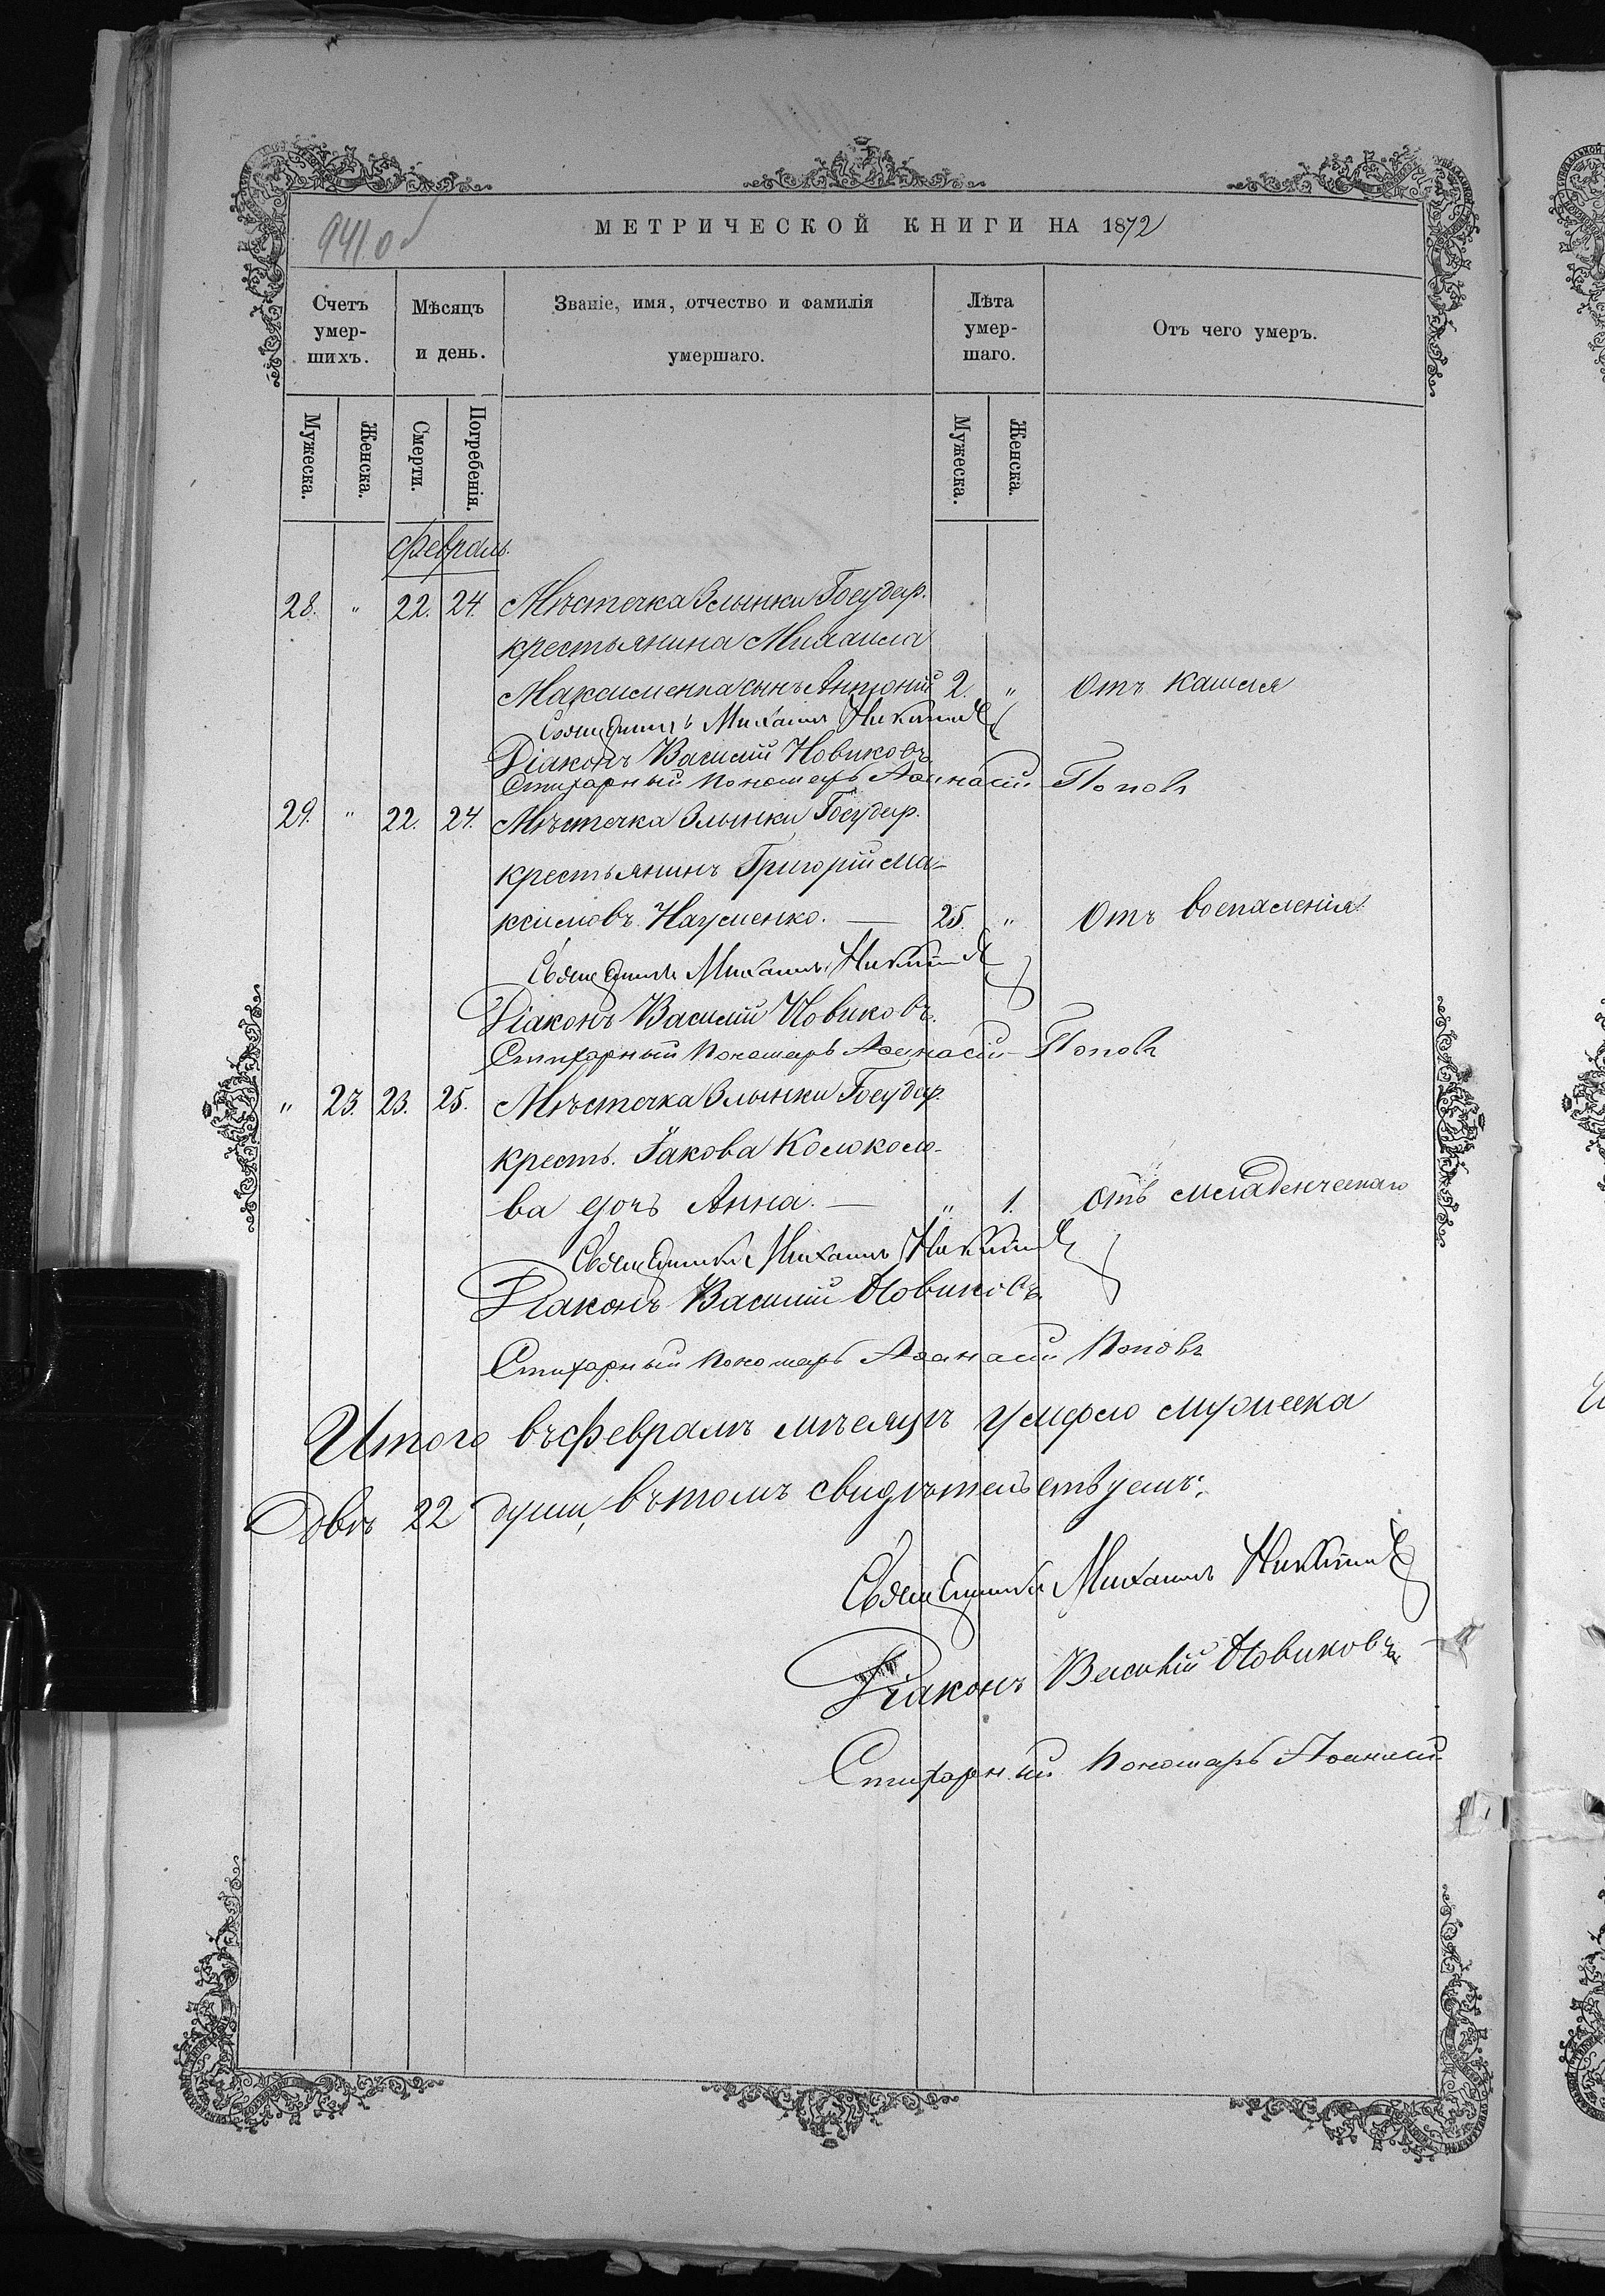 941 об
МЕТРИЧЕСКОЙ КНИГИ НА 1872
Счетъ умер-шихъ.
Мѣсяцъ и день.
Званіе, имя, отчество и фамилія умершаго.
Лѣта умер-шаго.
Отъ чего умеръ.
Мужеска.
Женска.
Смерти.
Погребенія.
Мужеска.
Женска.
Февраль.
28. " 22. 24. Мѣстечка Злынки Государ.
крестьянина Михаила
Максименка сынъ Антоній 2. " Отъ кашля
Священникъ Михаилъ Никитинъ
Діаконъ Василій Новиковъ
Стихарный Пономарь Аѳанасій Поповъ
29. " 22. 24. Мѣстечка Злынки Государ.
крестьянинъ Григорій Ма-
ксимовъ Науменко. — 25. " Отъ воспаленія
Священникъ Михаилъ Никитинъ
Діаконъ Василій Новиковъ.
Стихарный Пономарь Аѳанасій Поповъ
" 23. 23. 25. Мѣстечка Злынки Государ.
кресть. Іакова Колоколо-
ва дочь Анна. — " 1. отъ младенческаго
Священникъ Михаилъ Никитинъ
Діаконъ Василій Новиковъ
Стихарный Пономарь Аѳанасій Поповъ
Итого въ Февралѣ мѣсяцѣ умерло мужеска
двѣ 22 души, въ томъ свидѣтельствуемъ:
Священникъ Михаилъ Никитинъ
Діаконъ Василій Новиковъ
Стихарный Пономарь Аѳанасій